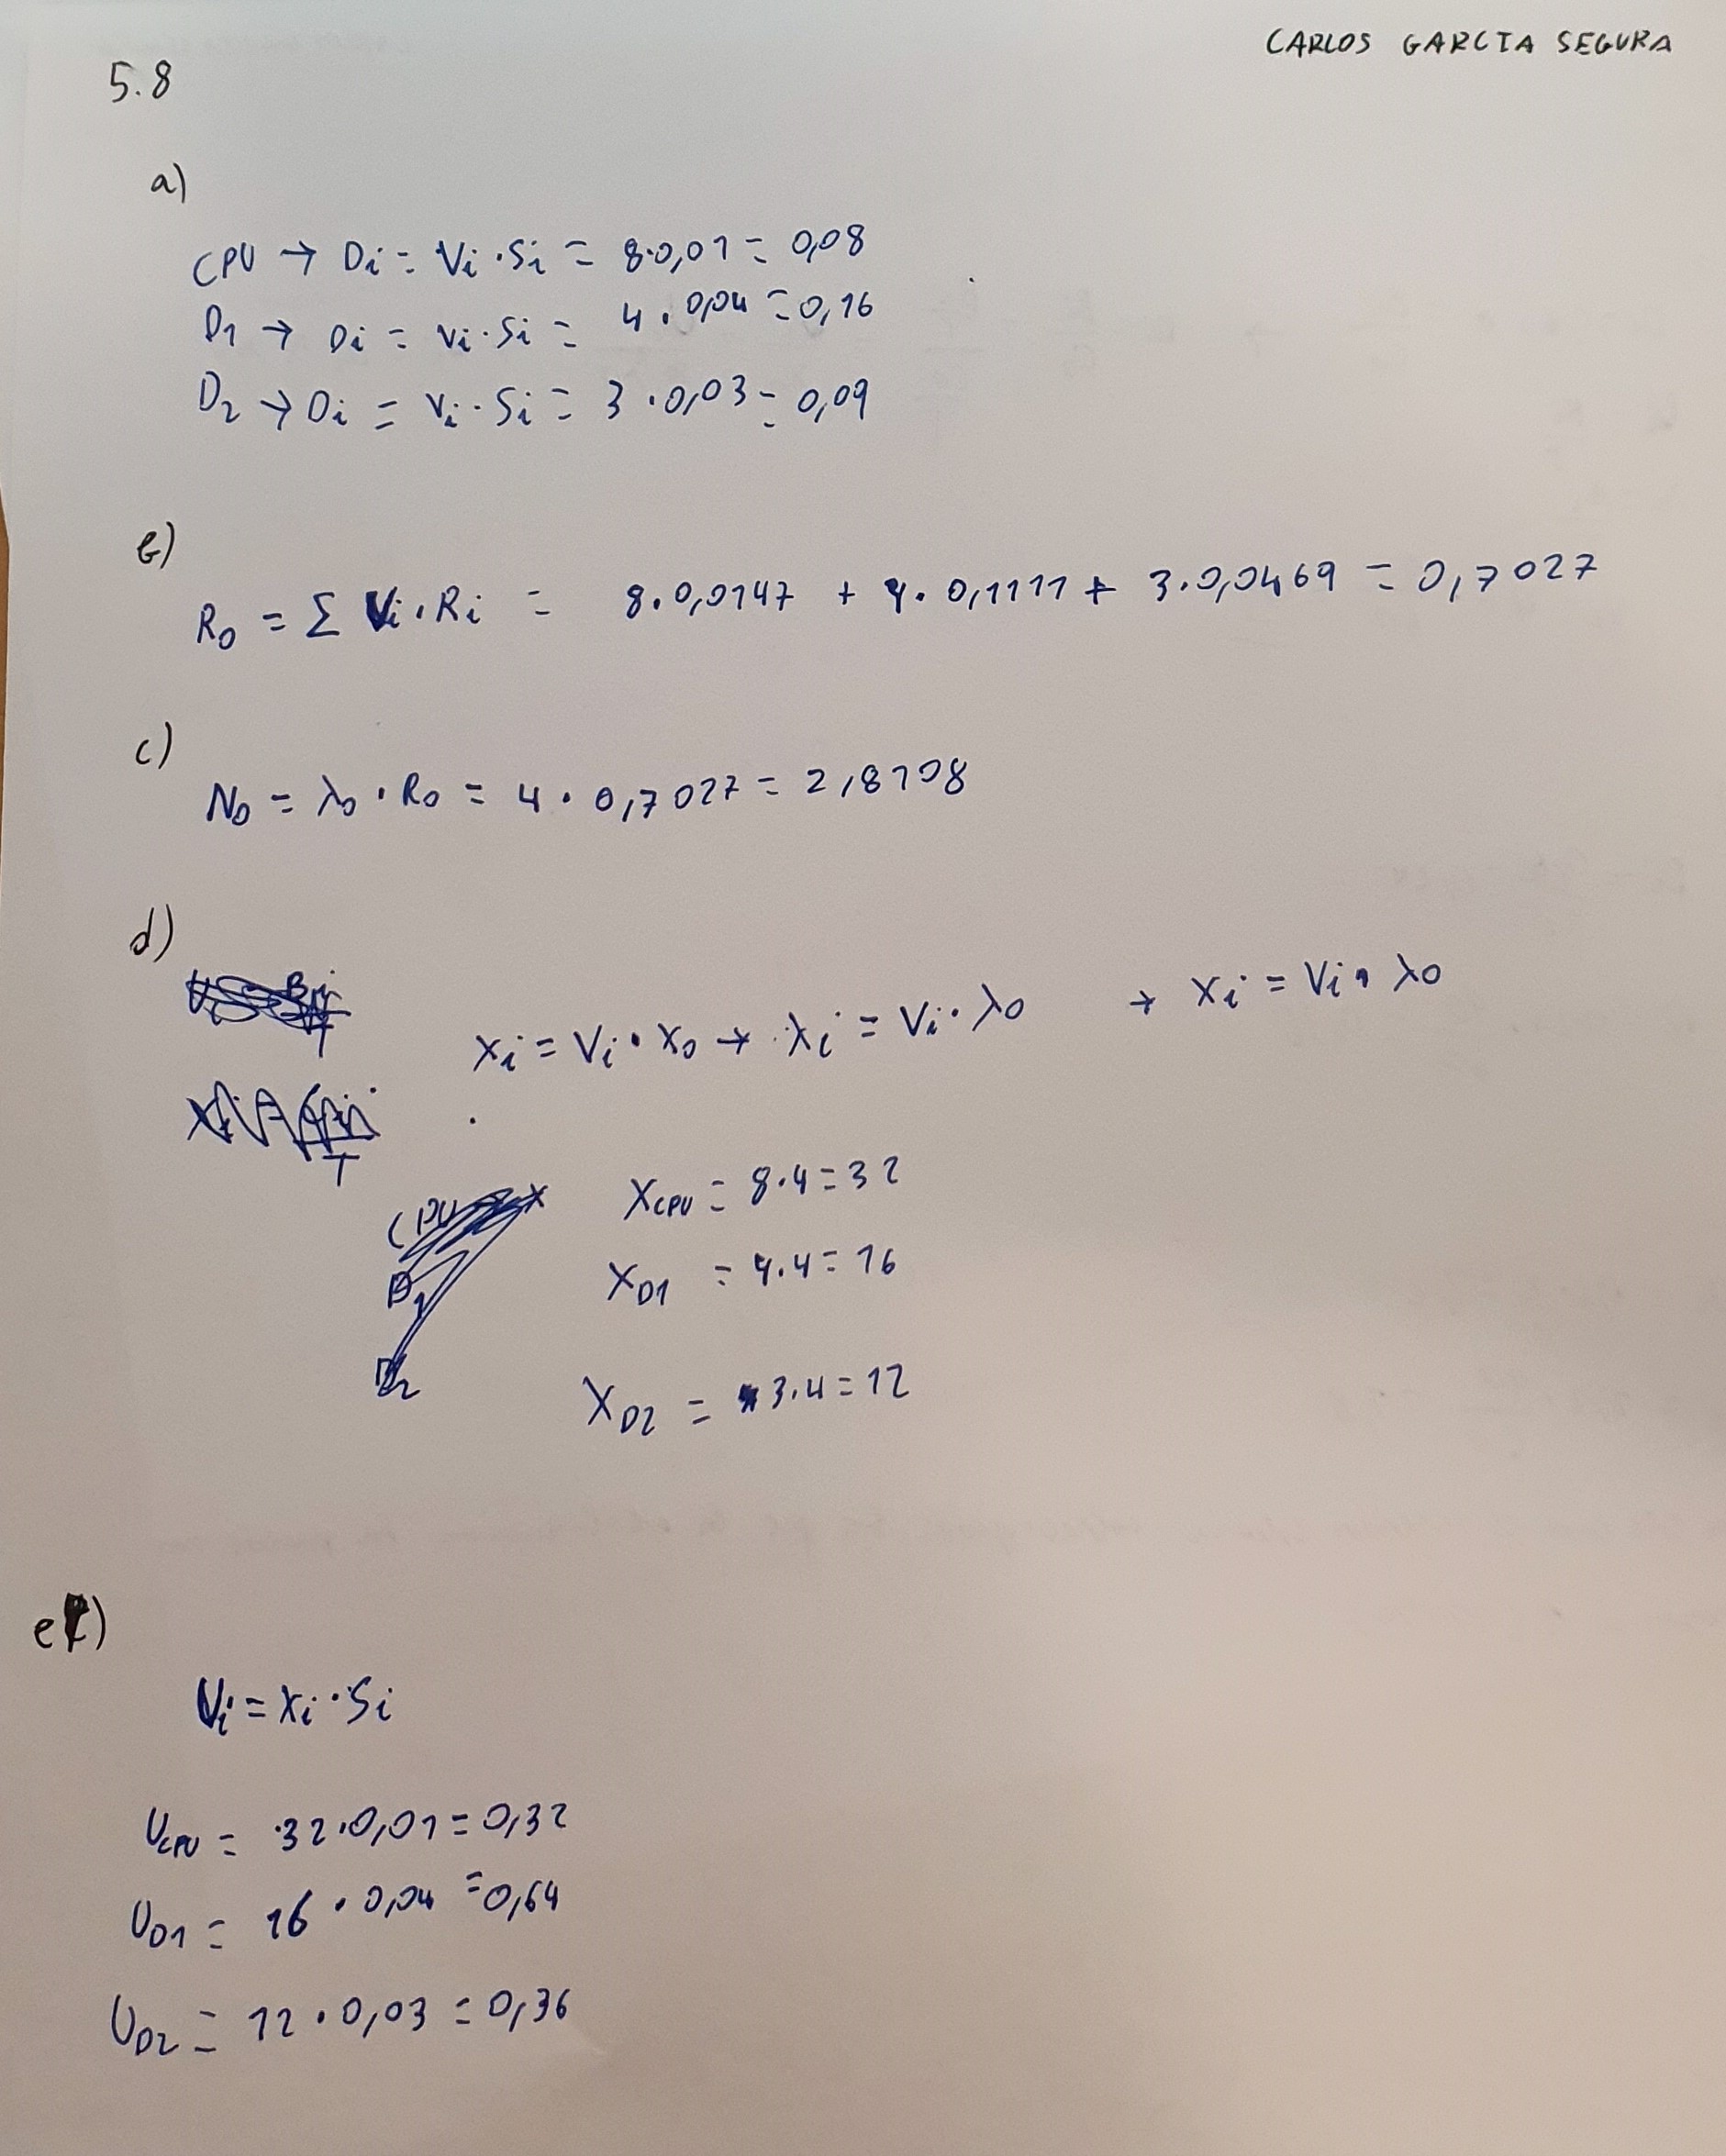 CARLOS GARCIA SEGURA
5.8
a)
CPU → Di = Vi · Si = 8·0,01 = 0,08
D1 → Di = Vi · Si = 4 · 0,04 = 0,16
D2 → Di = Vi · Si = 3 · 0,03 = 0,09
b)
R0 = Σ Vi · Ri = 8 · 0,0147 + 4 · 0,1111 + 3 · 0,0469 = 0,7027
c)
N0 = λ0 · R0 = 4 · 0,7027 = 2,8108
d)
Xi = Vi · X0 → λi = Vi · λ0 → Xi = Vi · λ0
XCPU = 8·4 = 32
XD1 = 4·4 = 16
XD2 = 3·4 = 12
e)
Ui = Xi · Si
UCPU = 32 · 0,01 = 0,32
UD1 = 16 · 0,04 = 0,64
UD2 = 12 · 0,03 = 0,36